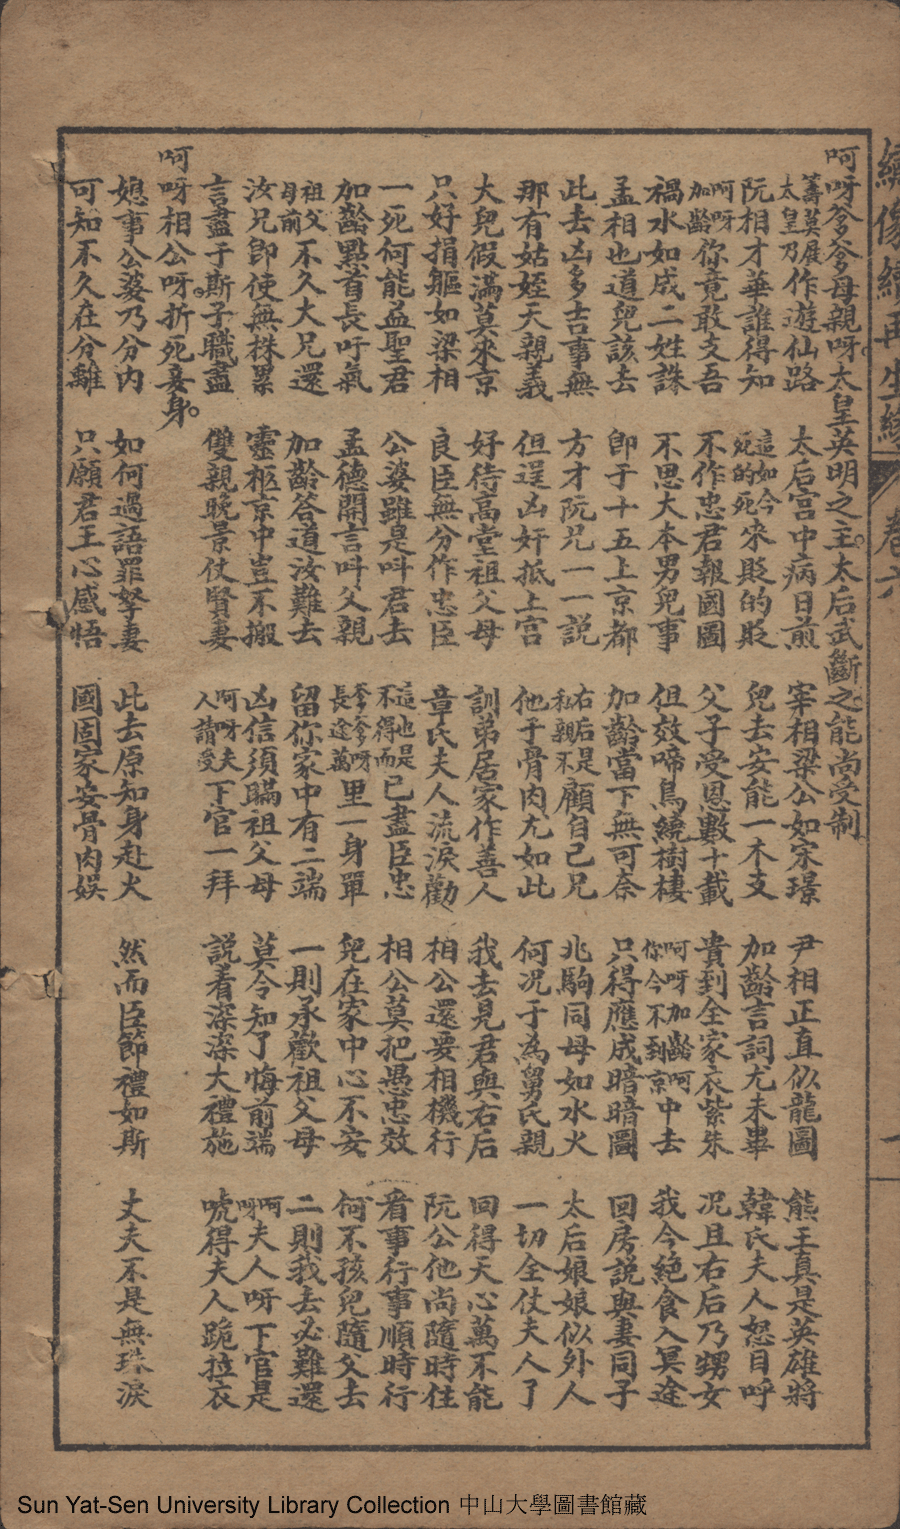 繡像續再生緣
卷六
一
呵呀爹爹母親呀。太皇英明之主。太后武斷之。能尚受制
籌莫展太皇乃作遊仙路　太后宮中病日煎　宰相梁公如宋璟　尹相正直似龍圖　熊王真是英雄將
阮相才華誰得知　這如今死的死來貶的貶　兒去安能一木支　加齡言詞尤未畢　韓氏夫人怒目呼
呵呀加齡你竟敢支吾　不作忠君報國圖　父子受恩數十載　貴到全家衣紫朱　况且右后乃甥女
禍水如成二姓誅　不思大本男兒事　但效啼鳥繞樹棲　呵呀加齡呵你今不到京中去　我今絕食入冥途
孟相也道兒該去　即于十五上京都　加齡當下無可奈　只得應成暗暗圖　回房說與妻同子
此去凶多吉事無　方才阮兄一一說　右后是私親不顧自己兄　兆駒同母如水火　太后娘娘似外人
那有姑姪天親義　但逞凶奸抵上宮　他于骨肉尤如此　何况于為舅氏親　一切全仗夫人了
大兒假滿莫來京　好待高堂祖父母　訓弟居家作善人　我去見君與右后　回得天心萬不能
只好捐軀如梁相　良臣無分作忠臣　章氏夫人流淚勸　相公還要相機行　阮公他尚隨時住
一死何能益聖君　公婆雖是呌君去　這也是不得而已盡臣忠　相公莫把愚忠效　看事行事順時行
加齡點首長吁氣　孟德開言呌父親　爹爹呀長途萬里一身單　兒在家中心不安　何不孩兒隨父去
祖父母前不久大兄還　加齡答道汝難去　留你家中有二端　一則承歡祖父母　二則我去必難還
汝兄即使無株累　靈柩京中豈不搬　凶信須瞞祖父母　莫令知了悔前端　呵呀夫人呀下官是
言盡于斯子職盡　雙親晚景仗賢妻　呵呀夫人請受下官一拜　說着深深大禮施　唬得夫人跪拉衣
呵呀相公呀。折死妾身。
媳事公婆乃分內　如何過語罪孥妻　此去原知身赴火　然而臣節禮如斯　丈夫不是無珠淚
可知不久在分離　只願君王心感悟　國固家安骨肉娛
Sun Yat-Sen University Library Collection 中山大學圖書館藏